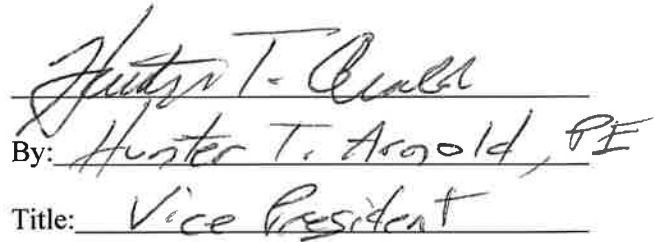 Hunter T. Arnold
By: Hunter T. Arnold, PE
Title: Vice President